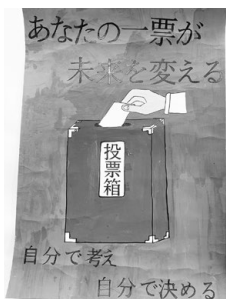 あなたの一票が
未来を変える
投票箱
自分で考え
自分で決める